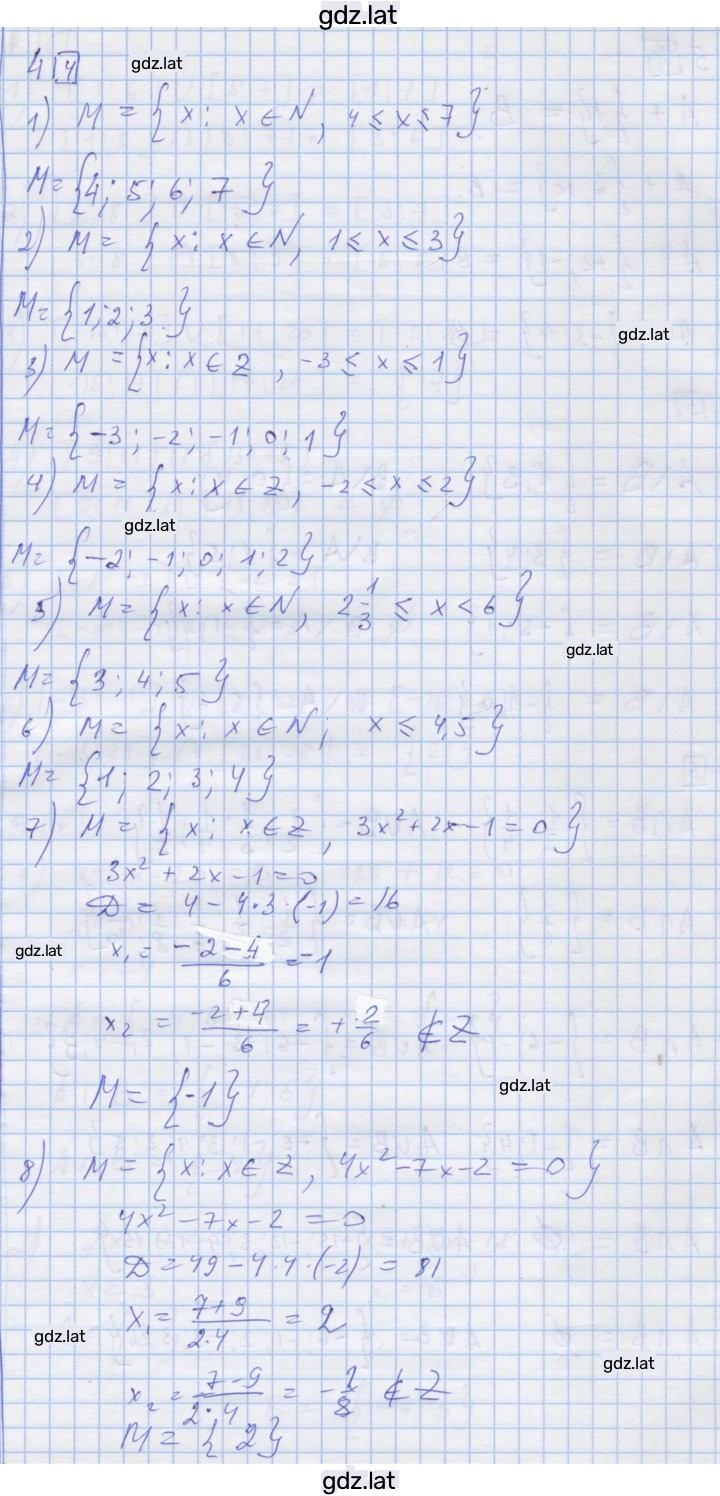 gdz.lat
4 4
gdz.lat
1) M = {x: x ∈ N, 4 ≤ x ≤ 7}
M = {4; 5; 6; 7}
2) M = {x: x ∈ N, 1 ≤ x ≤ 3}
M = {1; 2; 3}
gdz.lat
3) M = {x: x ∈ Z, -3 ≤ x ≤ 1}
M = {-3; -2; -1; 0; 1}
4) M = {x: x ∈ Z, -2 ≤ x ≤ 2}
gdz.lat
M = {-2; -1; 0; 1; 2}
5) M = {x: x ∈ N, 2 1/3 ≤ x < 6}
gdz.lat
M = {3; 4; 5}
6) M = {x: x ∈ N; x ≤ 4,5}
M = {1; 2; 3; 4}
7) M = {x: x ∈ Z, 3x² + 2x - 1 = 0}
3x² + 2x - 1 = 0
D = 4 - 4·3·(-1) = 16
gdz.lat
x₁ = (-2-4)/6 = -1
x₂ = (-2+4)/6 = +2/6 ∉ Z
gdz.lat
M = {-1}
8) M = {x: x ∈ Z, 4x² - 7x - 2 = 0}
4x² - 7x - 2 = 0
D = 49 - 4·4·(-2) = 81
x₁ = (7+9)/(2·4) = 2
gdz.lat
gdz.lat
x₂ = (7-9)/(2·4) = -2/8 ∉ Z
M = {2}
gdz.lat